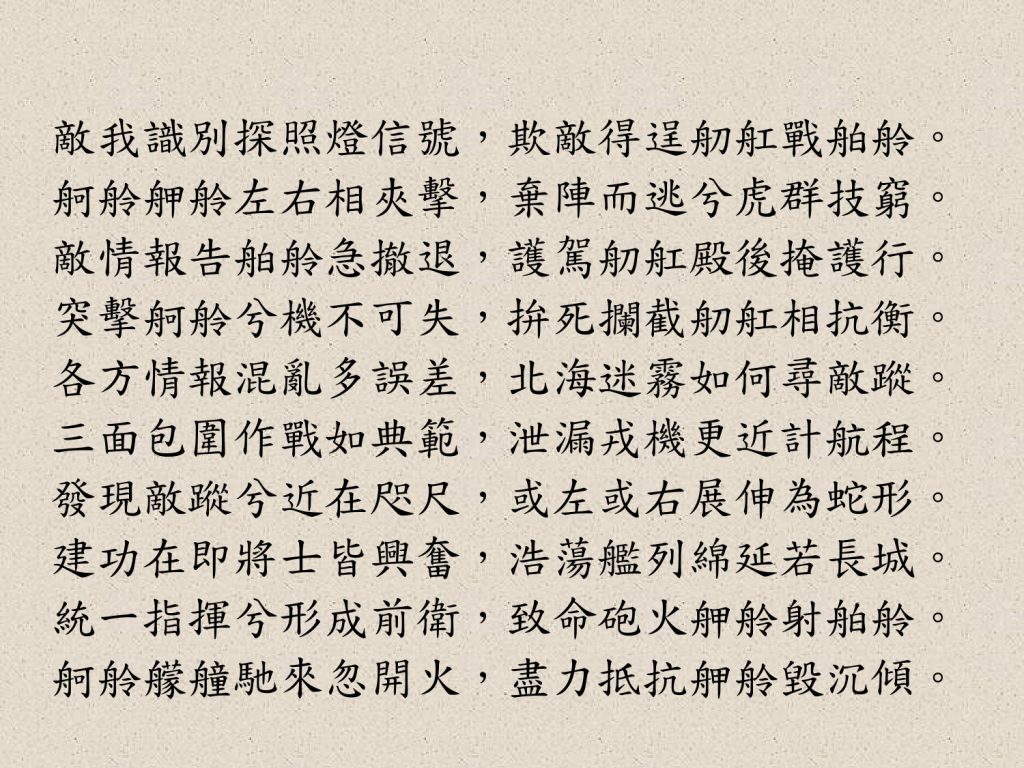 敵我識別探照燈信號，欺敵得逞舠舡戰舶舲。
舸舲舺舲左右相夾擊，棄陣而逃兮虎群技窮。
敵情報告舶舲急撤退，護駕舠舡殿後掩護行。
突擊舸舲兮機不可失，拚死攔截舠舡相抗衡。
各方情報混亂多誤差，北海迷霧如何尋敵蹤。
三面包圍作戰如典範，泄漏戎機更近計航程。
發現敵蹤兮近在咫尺，或左或右展伸為蛇形。
建功在即將士皆興奮，浩蕩艦列綿延若長城。
統一指揮兮形成前衛，致命砲火舺舲射舶舲。
舸舲艨艟馳來忽開火，盡力抵抗舺舲毀沉傾。